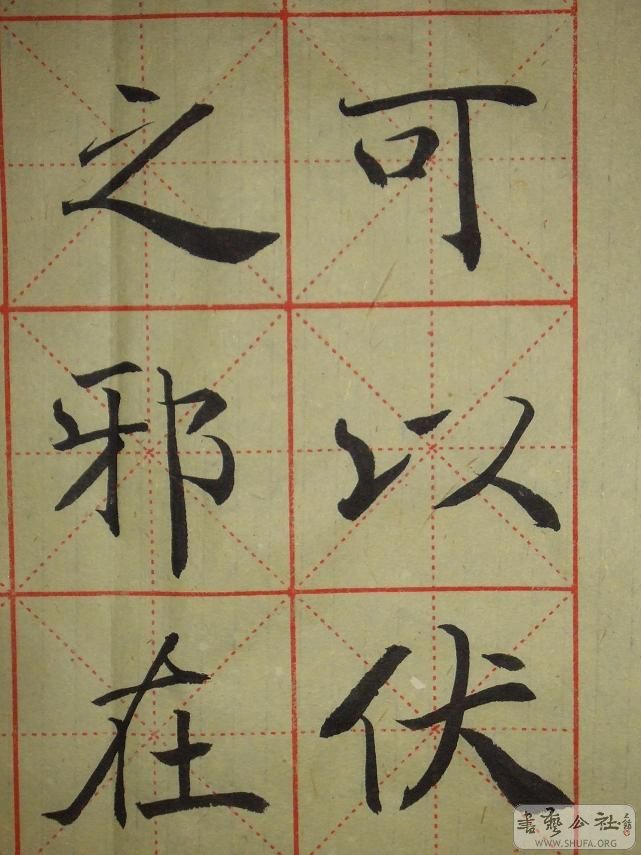 可以伏
之邪在
書藝公社
WWW.SHUFA.ORG